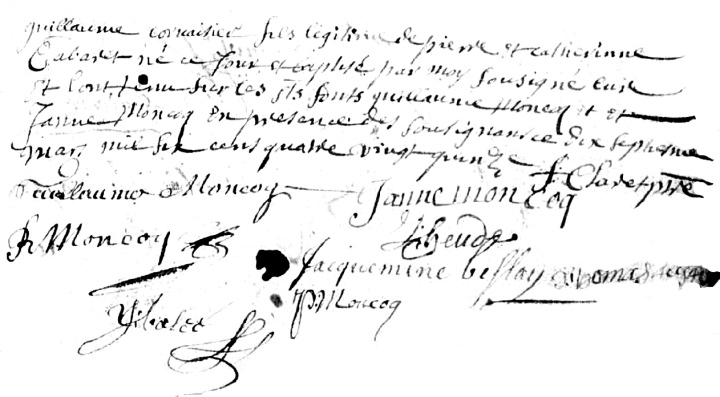 guillaume cornaisier fils légitime de pierre et catherinne
Cabaret né ce Jour et baptisé par moy sousigné curé
Et l'ont tenu sur les fts fonts guillaume Moncoq et
Janne Moncoq En presence des sousignans ce dix septieme
mars mil six cens quatre vingt quinze
Guillaume Moncoq
Janne moncoq
Claret ptre
R Moncoq
Jacquemine beslay
P Moncoq